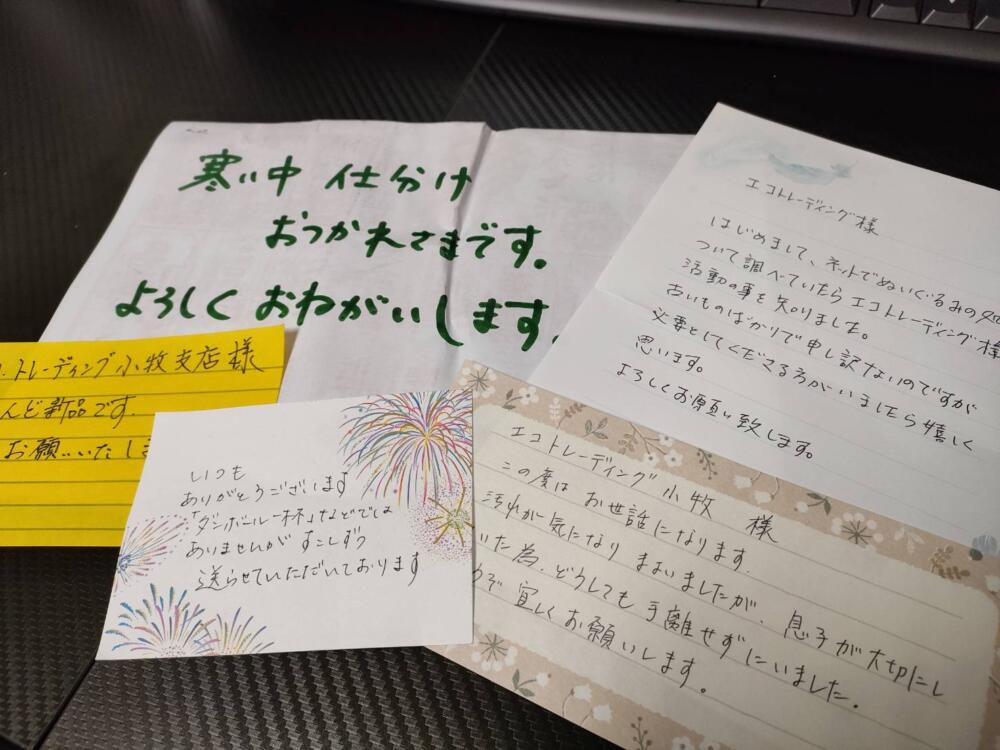 寒い中 仕分け
おつかれさまです。
よろしくおねがいします。
エコトレーディング様
はじめまして、ネットでぬいぐるみの処
ついて調べていたらエコトレーディング様
活動の事を知りました。
おいものばかりで申し訳ないのですが
必要としてくださる方がいましたら嬉しく
思います。
よろしくお願い致します。
トレーディング小牧支店様
んど新品です.
お願いいたしま
いつも
ありがとうございます
「ダンボール一杯」などでは
ありませんがすこしずつ
送らせていただいております
エコトレーディング小牧 様
この度はお世話になります.
汚れが気になり まよいましたが、息子が大切にし
いた為、どうしても手離せずにいました。
宜しくお願いします。